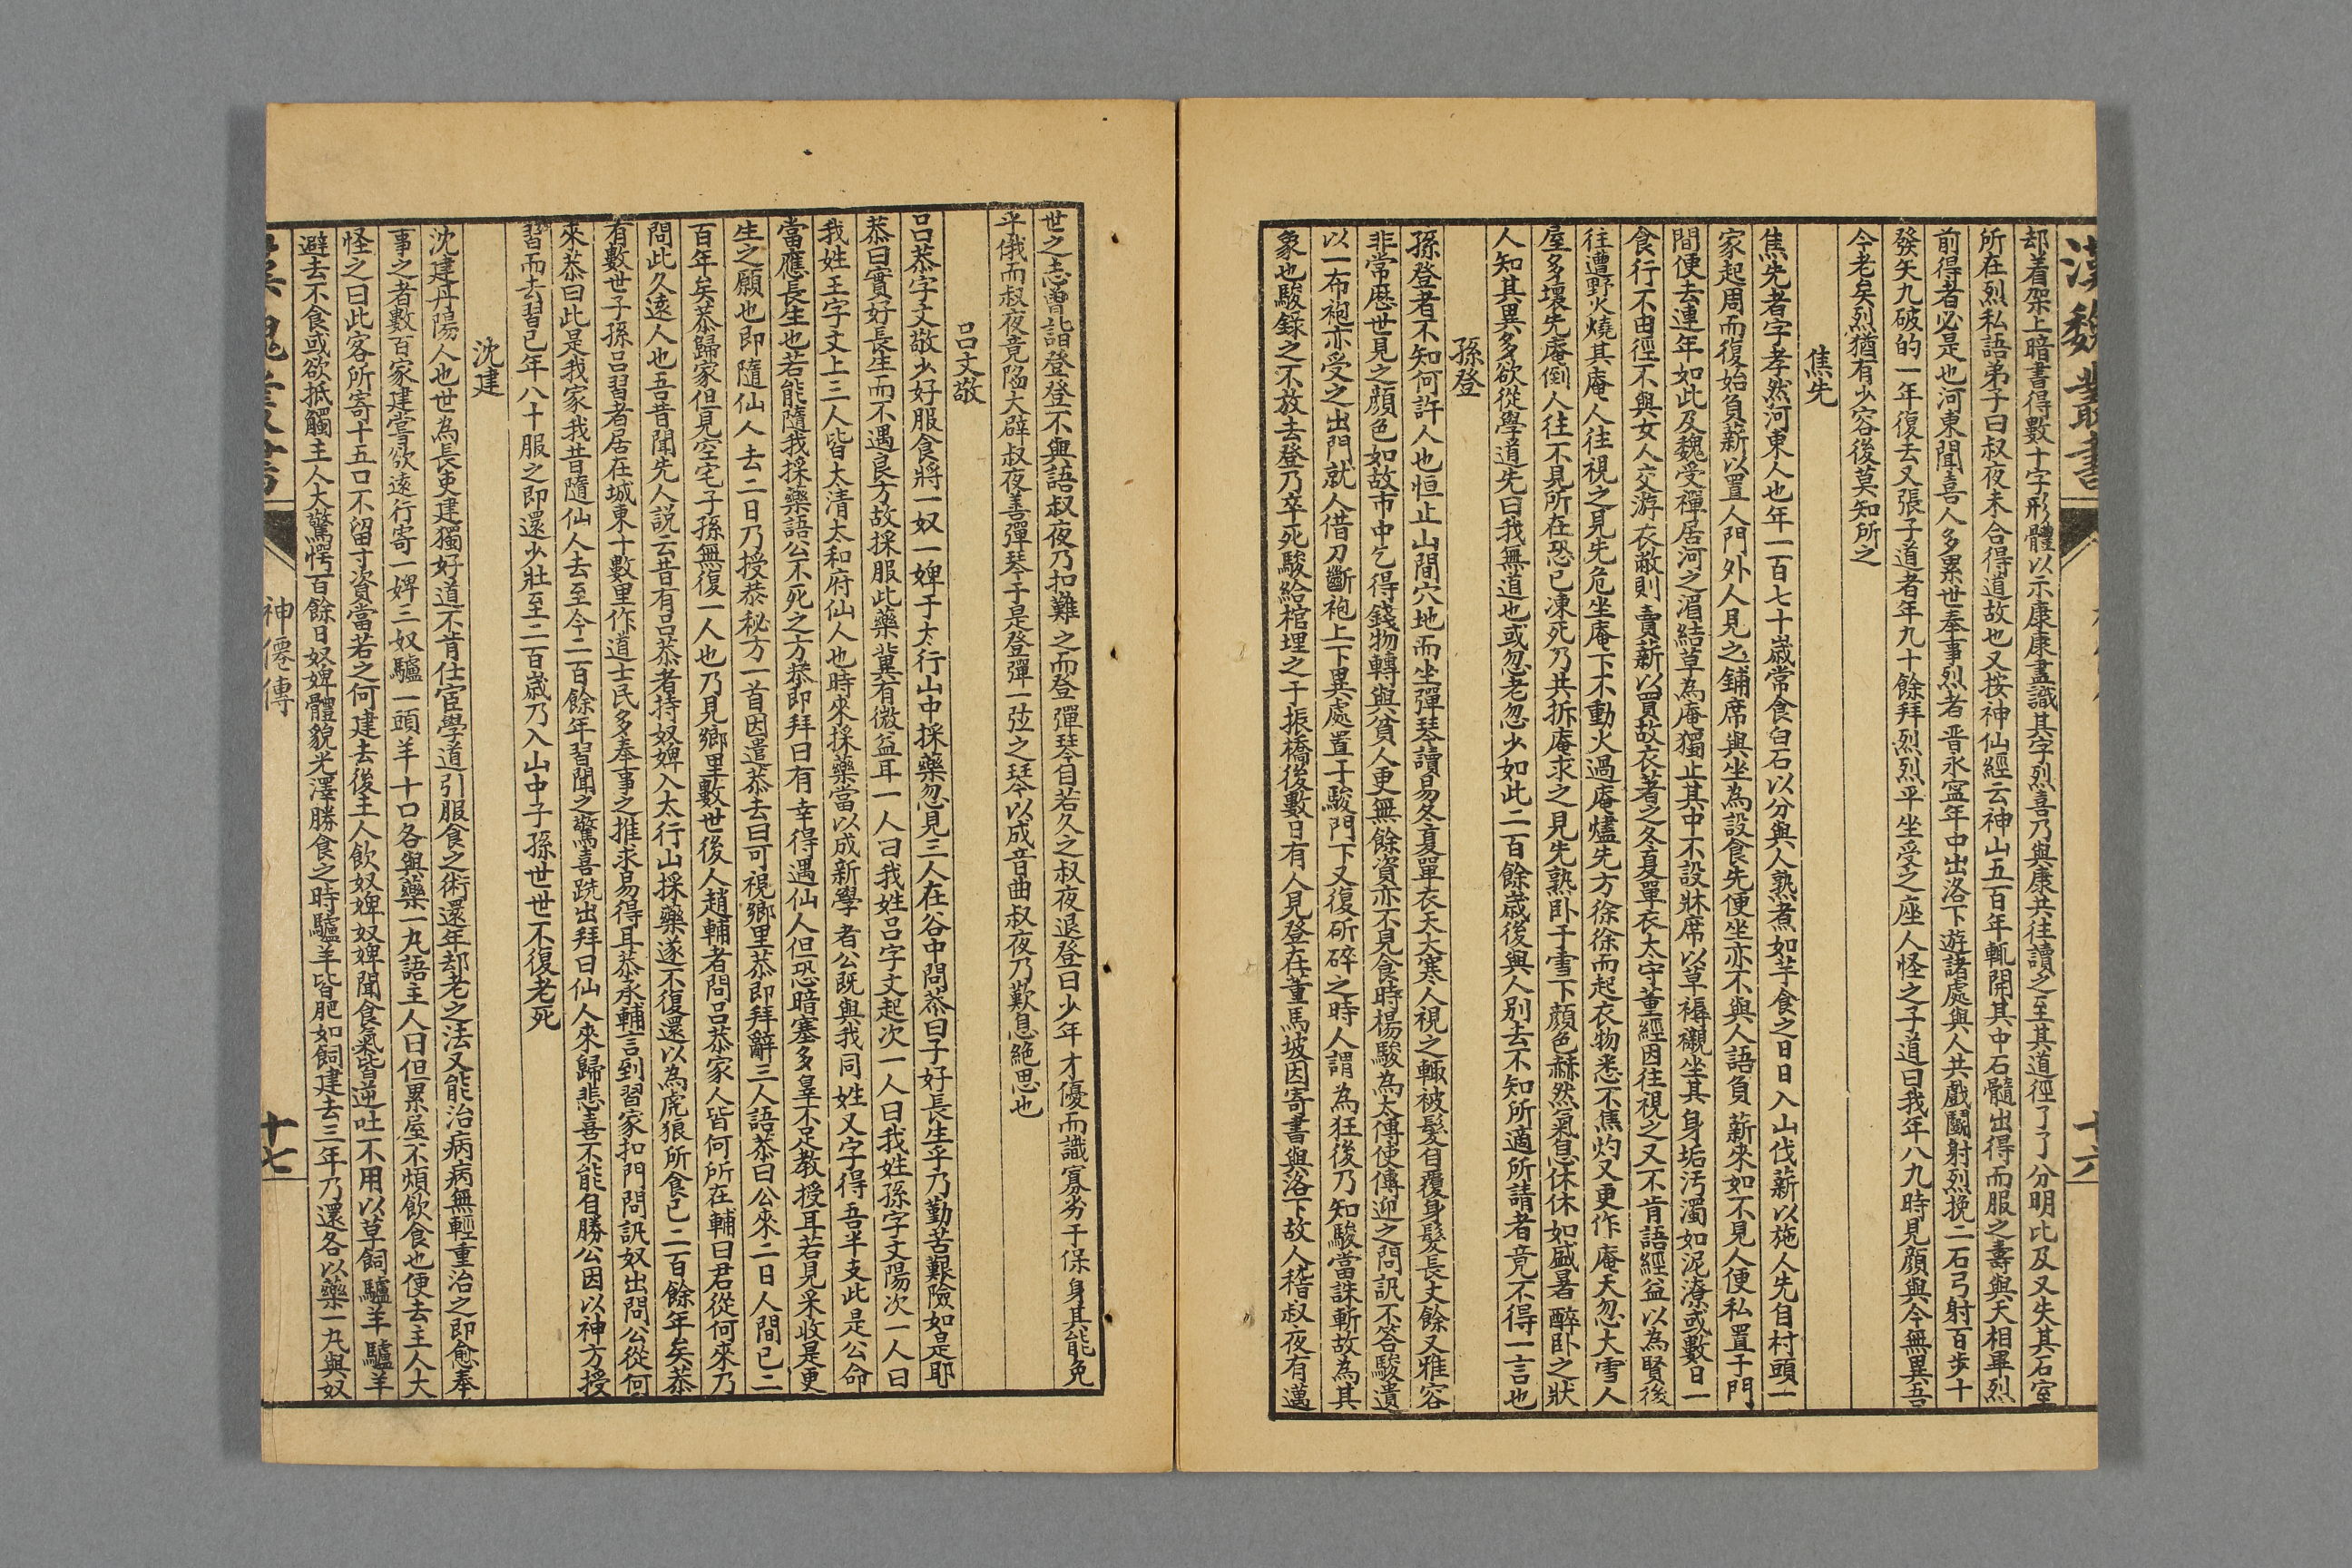 漢魏叢書
十六
却着架上暗書得數十字形體以示康康盡識其字烈喜乃與康共往讀之至其道徑了了分明比及又失其石室
所在烈私語弟子曰叔夜未合得道故也又按神仙經云神山五百年輒開其中石髓出得而服之壽與天相畢烈
前得者必是也河東聞喜人多累世奉事烈者晋永寧年中出洛下遊諸處與人共戲鬬射烈挽二石弓射百步十
發矢九破的一年復去又張子道者年九十餘拜烈烈平坐受之座人怪之子道曰我年八九時見顔與今無異吾
今老矣烈猶有少容後莫知所之
焦先
焦先者字孝然河東人也年一百七十歲常食白石以分與人熟煮如芋食之日日入山伐薪以施人先自村頭一
家起周而復始負薪以置人門外人見之鋪席與坐為設食先便坐亦不與人語負薪來如不見人便私置于門
間便去連年如此及魏受禪居河之湄結草為庵獨止其中不設牀席以草褥襯坐其身垢汚濁如泥潦或數日一
食行不由徑不與女人交游衣敝則賣薪以買故衣著之冬夏單衣太守董經因往視之又不肯語經益以為賢後
往遭野火燒其庵人往視之見先危坐庵下不動火過庵燼先方徐徐而起衣物悉不焦灼又更作庵天忽大雪人
屋多壞先庵倒人往不見所在恐已凍死乃共拆庵求之見先熟卧于雪下顔色赫然氣息休休如盛暑醉卧之狀
人知其異多欲從學道先曰我無道也或忽老忽少如此二百餘歲後與人别去不知所適所請者竟不得一言也
孫登
孫登者不知何許人也恒止山間穴地而坐彈琴讀易冬夏單衣天大寒人視之輒被髮自覆身髮長丈餘又雅容
非常歷世見之顔色如故市中乞得錢物轉與貧人更無餘資亦不見食時楊駿為太傅使傳迎之問訊不答駿遺
以一布袍亦受之出門就人借刀斷袍上下異處置于駿門下又復斫碎之時人謂為狂後乃知駿當誅斬故為其
象也駿録之不放去登乃卒死駿給棺埋之于振橋後數日有人見登在董馬坡因寄書與洛下故人嵇叔夜有邁
世之志曾詣登登不與語叔夜乃扣難之而登彈琴自若久之叔夜退登曰少年才優而識寡劣于保身其能免
乎俄而叔夜竟陷大辟叔夜善彈琴于是登彈一弦之琴以成音曲叔夜乃歎息絶思也
吕文敬
吕恭字文敬少好服食將一奴一婢于太行山中採藥忽見三人在谷中問恭曰子好長生乎乃勤苦艱險如是耶
恭曰實好長生而不遇良方故採服此藥冀有微益耳一人曰我姓吕字文起次一人曰我姓孫字文陽次一人曰
我姓王字文上三人皆太清太和府仙人也時來採藥當以成新學者公既與我同姓又字得吾半支此是公命
當應長生也若能隨我採藥語公不死之方恭即拜曰有幸得遇仙人但恐暗塞多辠不足教授耳若見采收是更
生之願也即隨仙人去二日乃授恭秘方一首因遣恭去曰可視鄉里恭即拜辭三人語恭曰公來二日人間已二
百年矣恭歸家但見空宅子孫無復一人也乃見鄉里數世後人趙輔者問吕恭家人皆何所在輔曰君從何來乃
問此久遠人也吾昔聞先人説云昔有吕恭者持奴婢入太行山採藥遂不復還以為虎狼所食已二百餘年矣恭
有數世子孫吕習者居在城東十數里作道士民多奉事之推求易得耳恭承輔言到習家扣門問訊奴出問公從何
來恭曰此是我家我昔隨仙人去至今二百餘年習聞之驚喜跣出拜曰仙人來歸悲喜不能自勝公因以神方授
習而去習已年八十服之即還少壯至二百歲乃入山中子孫世世不復老死
沈建
沈建丹陽人也世為長吏建獨好道不肯仕宦學道引服食之術還年却老之法又能治病病無輕重治之即愈奉
事之者數百家建嘗欲遠行寄一婢三奴驢一頭羊十口各與藥一丸語主人曰但累屋不煩飲食也便去主人大
怪之曰此客所寄十五口不留寸資當若之何建去後主人飲奴婢奴婢聞食氣皆逆吐不用以草飼驢羊驢羊
避去不食或欲抵觸主人大驚愕百餘日奴婢體貌光澤勝食之時驢羊皆肥如飼建去三年乃還各以藥一丸與奴
漢魏叢書
神僊傳
十七